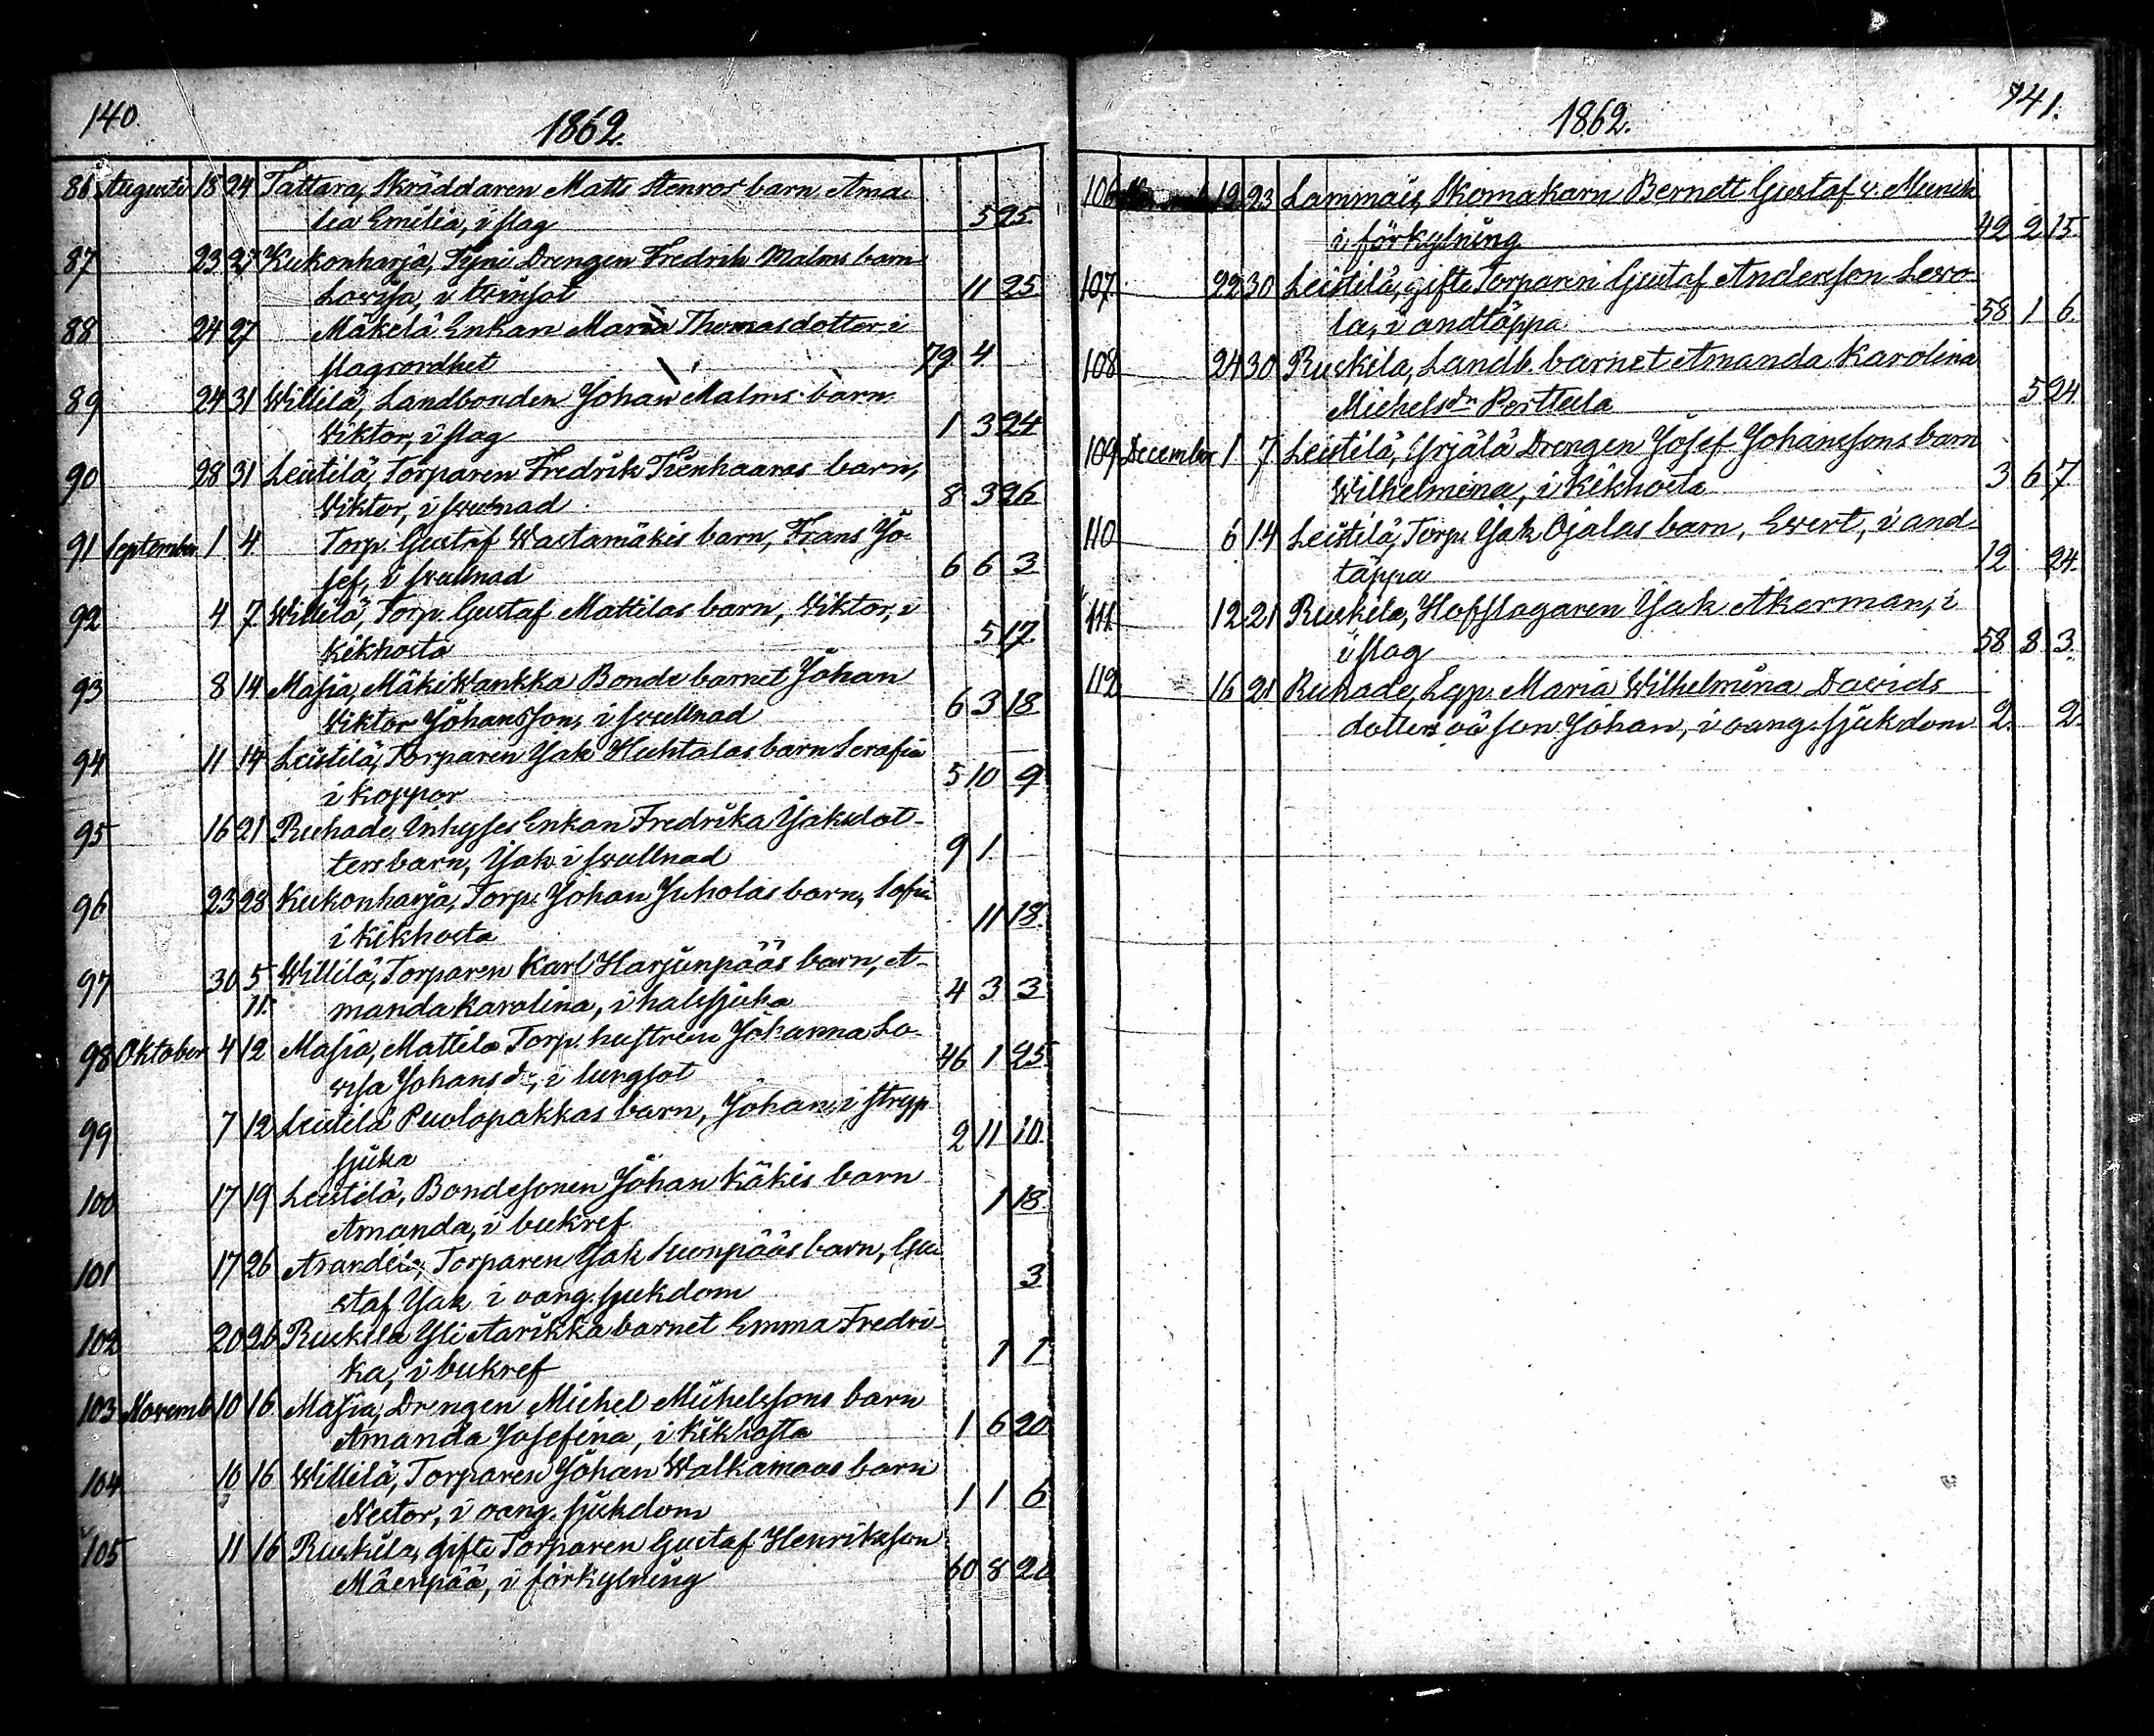 140.
1862.
86 Augusti 18 24 Tattara, Skräddaren Matts Stenros barn Ama-
lia Emilia, i slag 5 25
87 23 27 Kukonharja, Tyni Drengen Fredrik Malms barn
Lovisa, i tvinsot 11 25
88 24 27 Mäkelä Enkan Maria Thomasdotter, i
slag 79 4.
89 24 31 Willilä, Landbonden Johan Malms barn
Viktor, i slag 1 3 24
90 28 31 Leistilä, Torparen Fredrik Tienhaaras barn,
Viktor, i svullnad 8 3 26
91 September 1 4. Torp. Gustaf Wastamäkis barn, Frans Jo-
sef, i svullnad 6 6 3
92 4 7 Willilä, Torp. Gustaf Mattilas barn, Viktor, i
kikhosta 5 17
93 8 14 Masia, Mäkiwankka Bonde barnet Johan
Viktor Johansson, i svullnad 6 3 18
94 11 14 Leistilä, Torparen Jak Huhtalas barn Serafia
i koppor 5 10 9
95 16 21 Ruhade Inhyses Enkan Fredrika Jaksdot-
ters barn, Jak i svullnad 9 1
96 23 28 Kukonharja, Torp. Johan Juholas barn, Sofia
i kikhosta 11 18.
97 30 5 Willilä, Torparen Karl Harjunpääs barn, A-
11. manda Karolina, i halssjuka 4 3 3
98 Oktober 4 12 Masia, Mattila Torp. hustrun Johanna Lo-
visa Johansdr, i lungsot 46 1 25
99 7 12 Leistilä Puolapakkas barn, Johan, i stryp
sjuka 2 11 10.
100 17 19 Leistilä, Bondesonen Johan Käkis barn
Amanda, i bukref 1 18
101 17 26 Torparen Jak Suonpääs barn, Gu
staf Jak i oang. sjukdom 3
102 20 26 Ruskila Yli Aarikka barnet Emma Fredri-
ka, i bukref 1 1
103 Novemb 10 16 Masia, Drengen Michel Michelssons barn
Amanda Josefina, i kikhosta 1 6 20
104 10 16 Willilä, Torparen Johan Walkamaas barn
Nestor, i oang. sjukdom 1 1 6
105 11 16 Ruskila, gifte Torparen Gustaf Henriksson
Mäenpää, i förkylning 60 8 20
141.
1862.
106 19 23 Lammais, Skomakarn Bernett Gustaf v. Munck
i förkylning 42 2 15.
107. 22 30 Leistilä, gifte Torparen Gustaf Andersson Levo-
la, i andtäppa 58 1 6.
108 24 30 Ruskila, Landb. barnet Amanda Karolina
Michelsdr Perttula 5 24
109 December 1 7 Leistilä, Yrjälä Drengen Josef Johanssons barn
Wilhelmina, i kikhosta 3 6 7
110 6 14 Leistilä, Torp. Jak Ojalas barn, Evert, i and-
täppa 12 24.
111 12 21 Ruskila, Hofslagaren Jak Åkerman, i
i slag 58 8 3.
112 16 21 Ruhade, Maria Wilhelmina Davids
dotters oä son Johan, i oang. sjukdom 2. 2.